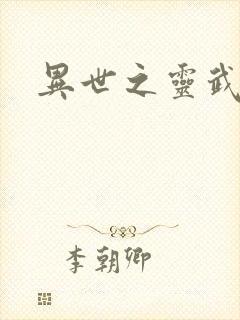 異世之靈武
李朝卿